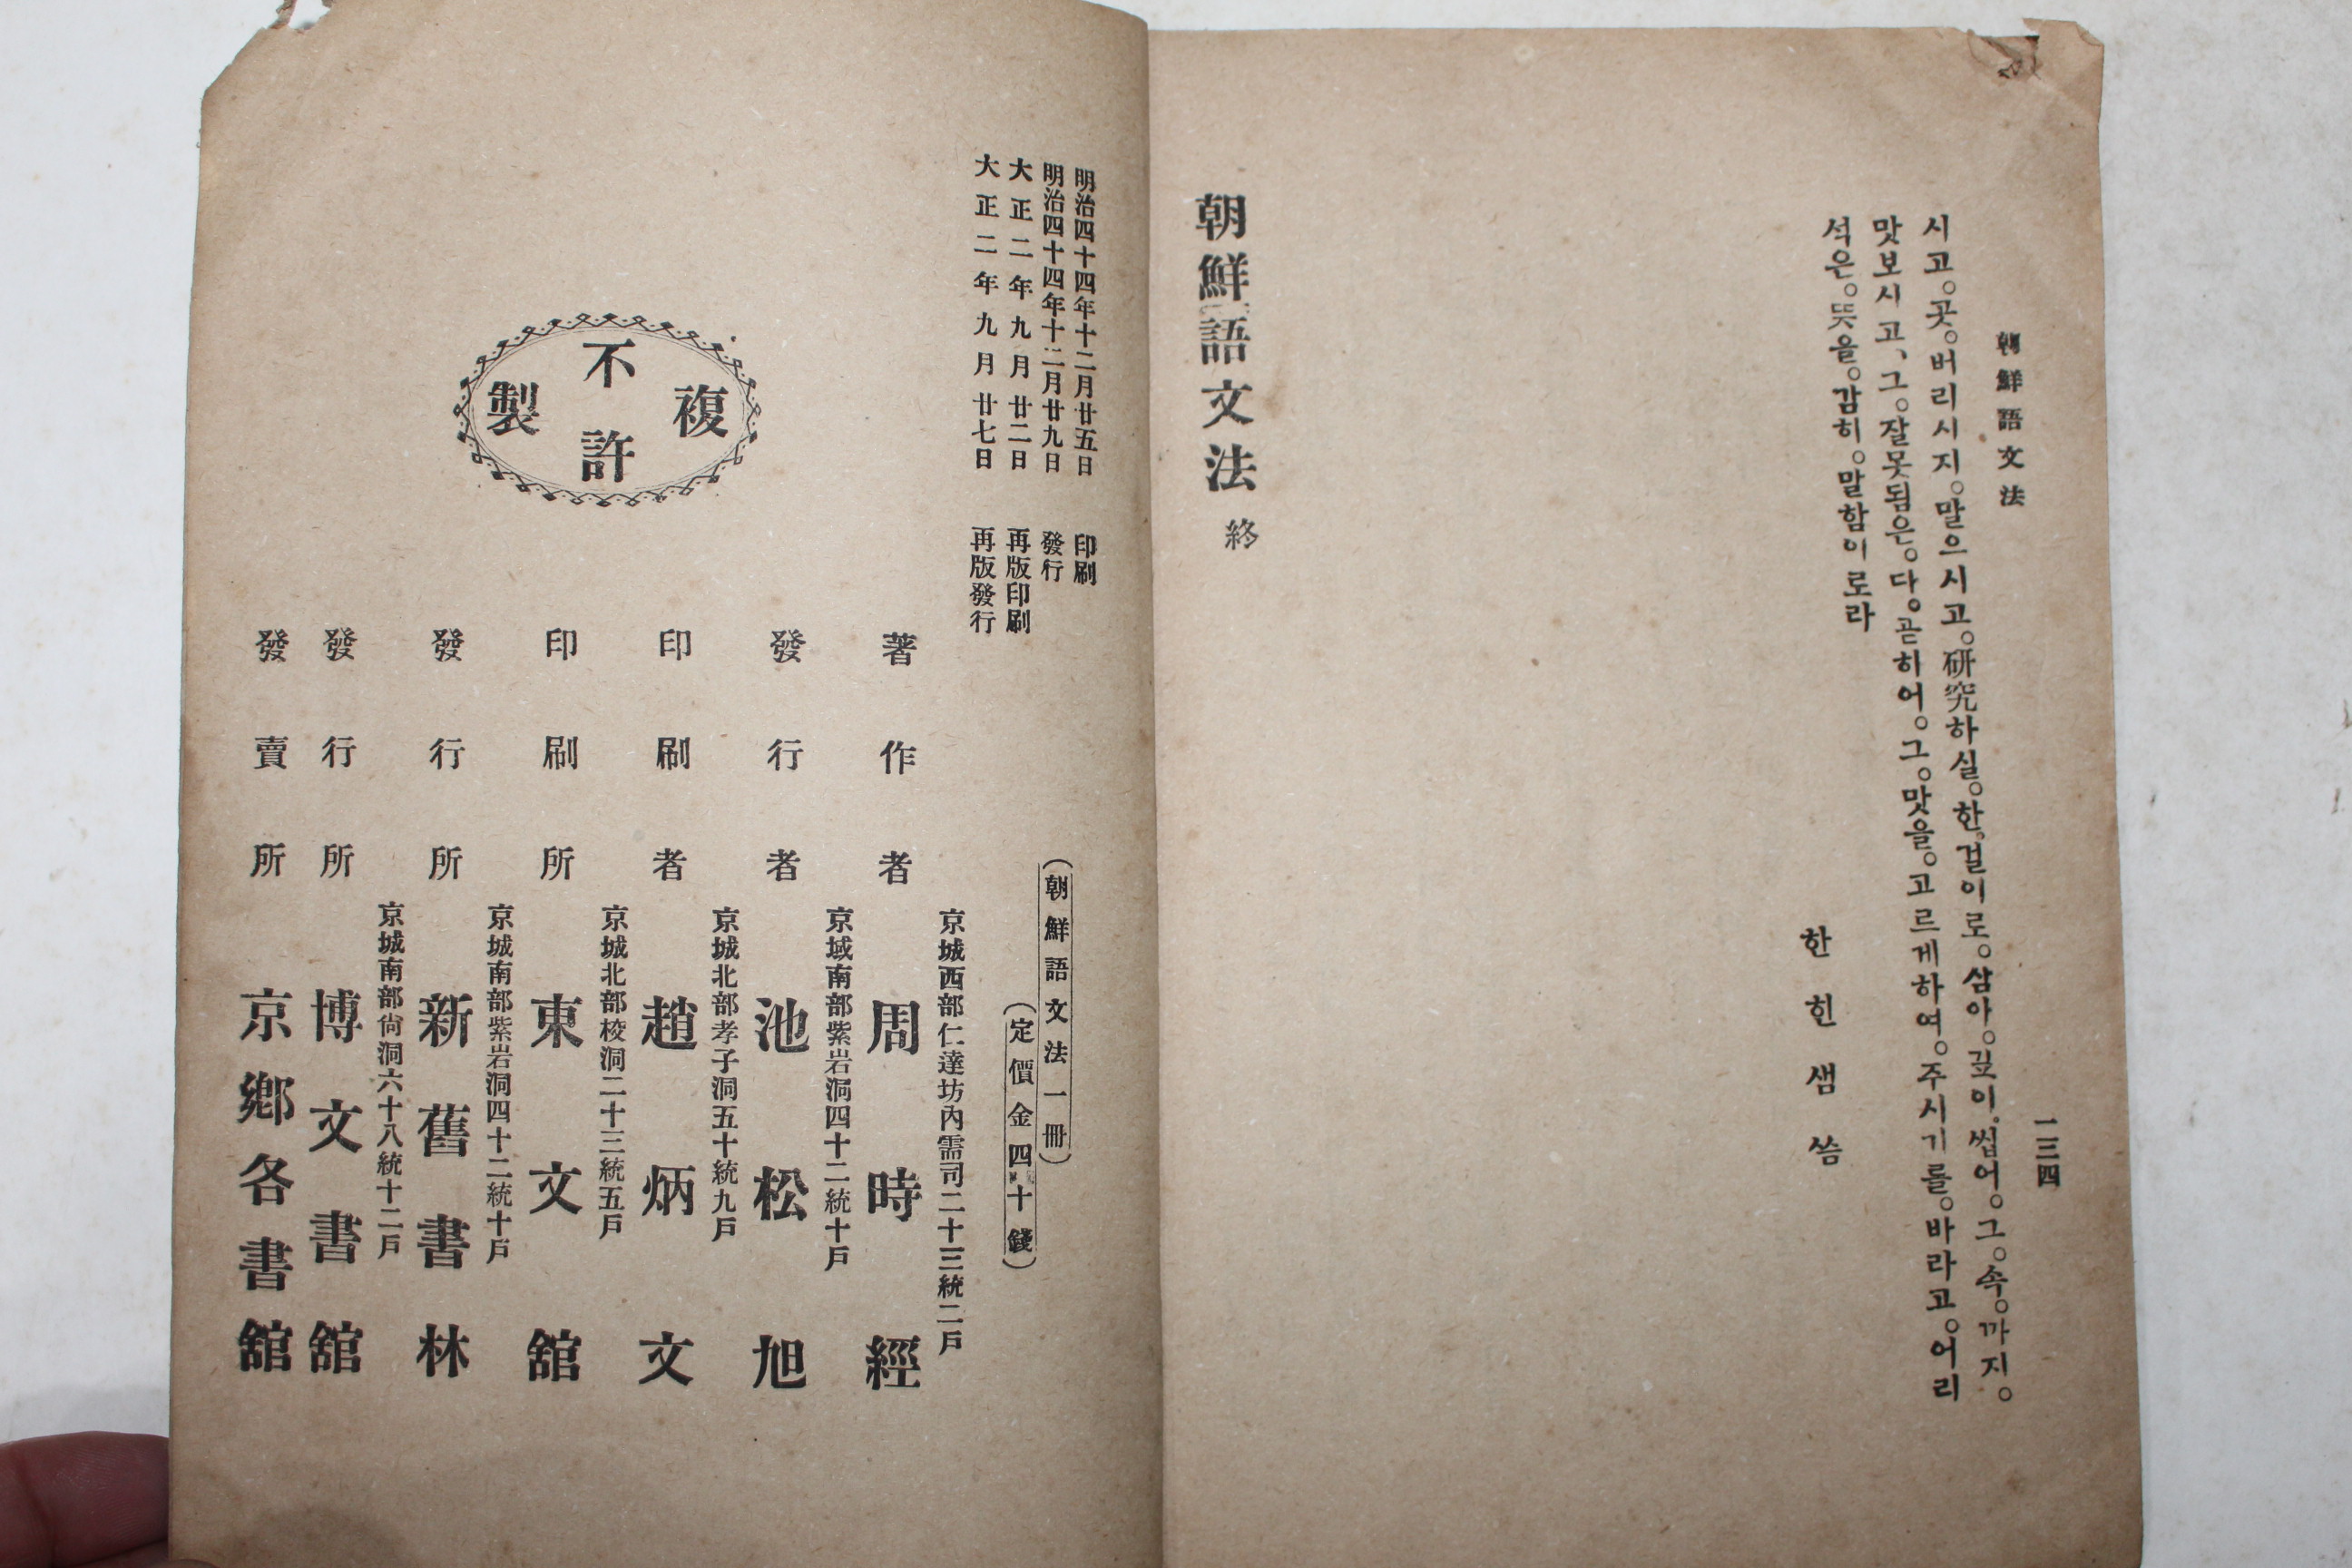 朝鮮語文法
一三四
시고。곳。버리시지。말으시고。硏究하실。한。걸이로。삼아。깊이。씹어。그。속。까지。
맛보시고、그。잘못됨은。다。곧히어。그。맛을。고르게하여。주시기를。바라고。어리
석은。뜻을。감히。말함이로라
한힌샘 씀
朝鮮語文法 終
明治四十四年十二月廿五日 印刷
明治四十四年十二月廿九日 發行
大正二年九月廿二日 再版印刷
大正二年九月廿七日 再版發行
(朝鮮語文法一冊)
(定價金四十錢)
複製不許
京城西部仁達坊內需司二十三統二戶
著作者 周時經
京城南部紫岩洞四十二統十戶
發行者 池松旭
京城北部孝子洞五十統九戶
印刷者 趙炳文
京城北部校洞二十三統五戶
印刷所 東文舘
京城南部紫岩洞四十二統十戶
發行所 新舊書林
京城南部尙洞六十八統十二戶
發行所 博文書舘
發賣所 京鄕各書舘